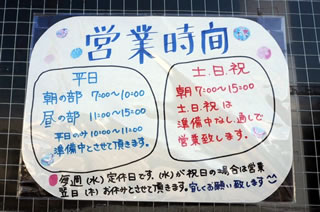 営業時間
平日
朝の部 7:00~10:00
昼の部 11:00~15:00
平日のみ10:00~11:00
準備中とさせて頂きます。
土.日.祝
朝 7:00~15:00
土.日.祝は
準備中なし、通しで
営業致します。
毎週(水)定休日です。(水)が祝日の場合は営業
翌日(木)お休みとさせて頂きます。宜しくお願い致します